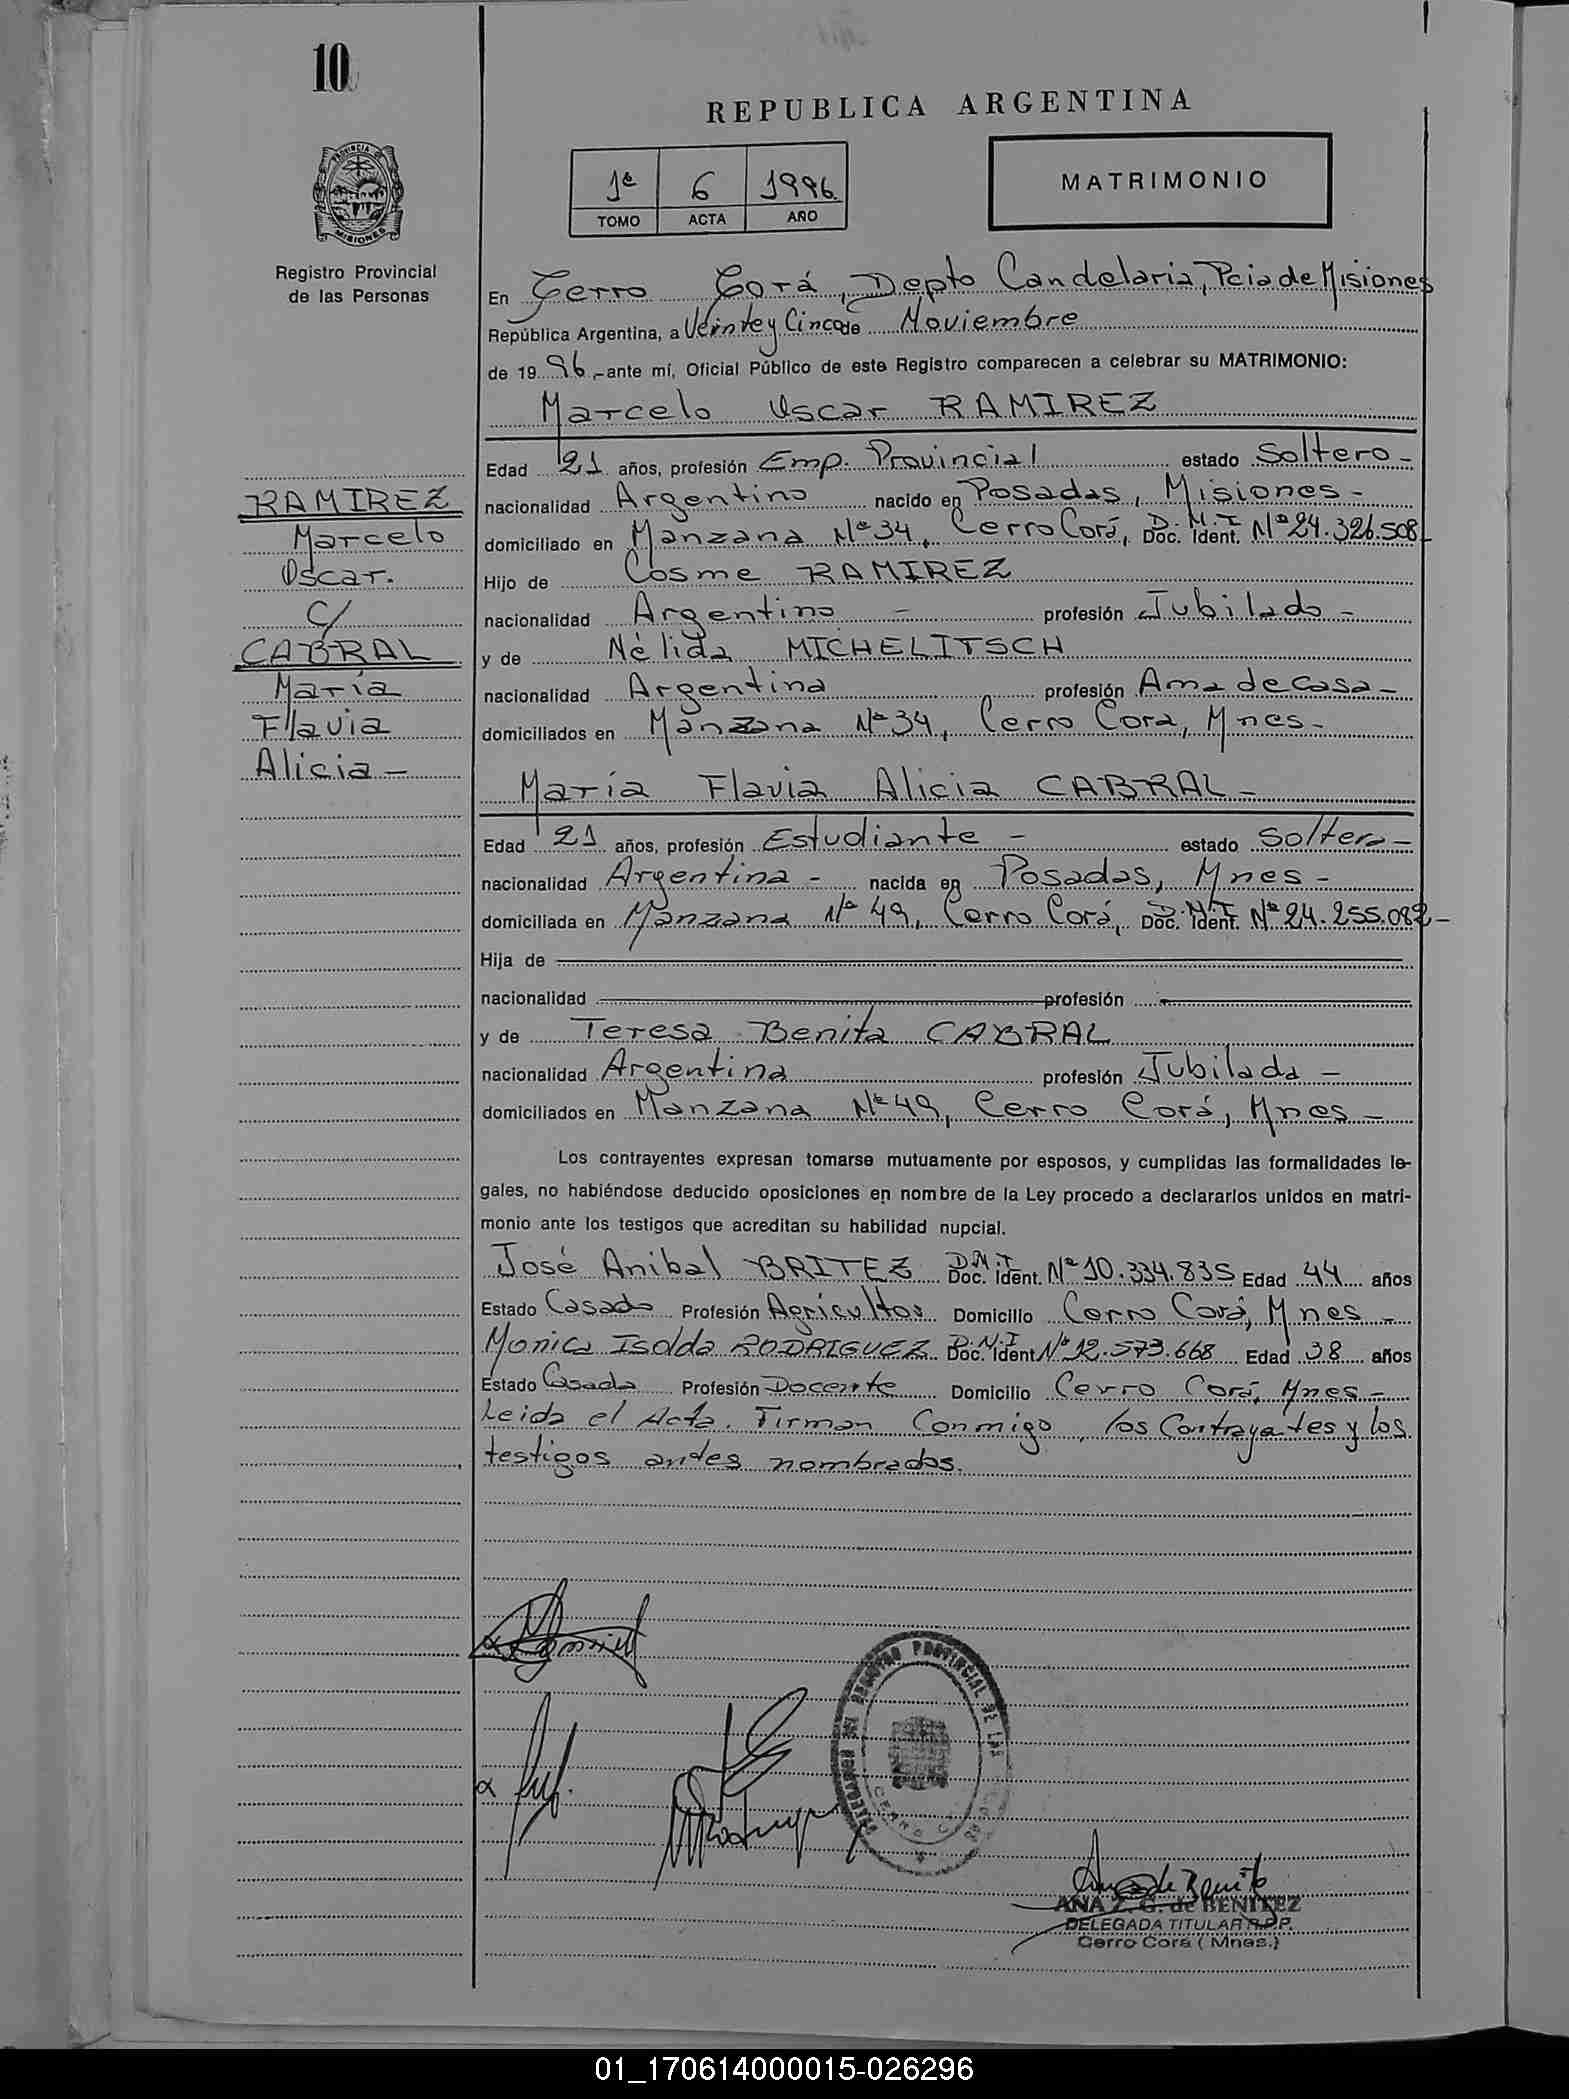 10
REPUBLICA ARGENTINA
1º 6 1996
TOMO ACTA AÑO
MATRIMONIO
PROVINCIA DE
MISIONES
Registro Provincial
de las Personas
En Cerro Corá, Depto Candelaria, Pcia de Misiones
República Argentina, a Veinte y Cinco de Noviembre
de 19 96 ,-ante mí, Oficial Público de este Registro comparecen a celebrar su MATRIMONIO:
Marcelo Oscar RAMIREZ
Edad 21 años, profesión Emp. Provincial estado Soltero-
nacionalidad Argentino nacido en Posadas, Misiones-
domiciliado en Manzana Nº 34, Cerro Corá, D.N.I. Doc. Ident. Nº 24.326.508-
Hijo de Cosme RAMIREZ
nacionalidad Argentino - profesión Jubilado-
y de Nélida MICHELITSCH
nacionalidad Argentina profesión Ama de casa-
domiciliados en Manzana Nº 34, Cerro Cora, Mnes-
RAMIREZ
Marcelo
Oscar.
C/
CABRAL
María
Flavia
Alicia-
María Flavia Alicia CABRAL-
Edad 21 años, profesión Estudiante - estado Soltera-
nacionalidad Argentina - nacida en Posadas, Mnes-
domiciliada en Manzana Nº 49, Cerro Corá, D.N.I. Doc. Ident. Nº 24.255.082-
Hija de
nacionalidad profesión
y de Teresa Benita CABRAL
nacionalidad Argentina profesión Jubilada-
domiciliados en Manzana Nº 49, Cerro Corá, Mnes-
Los contrayentes expresan tomarse mutuamente por esposos, y cumplidas las formalidades le-
gales, no habiéndose deducido oposiciones en nombre de la Ley procedo a declararlos unidos en matri-
monio ante los testigos que acreditan su habilidad nupcial.
José Anibal BRITEZ D.N.I Doc. Ident. Nº 10.334.835 Edad 44 años
Estado Casado Profesión Agricultor Domicilio Cerro Corá, Mnes-
Monica Isolda RODRIGUEZ D.N.I Doc. Ident Nº 12.573.668 Edad 38 años
Estado Casada Profesión Docente Domicilio Cerro Corá, Mnes-
Leida el Acta. Firman Conmigo, los Contrayates y los
testigos antes nombrados.
REGISTRO PROVINCIAL DE LAS
ANA Z. G. de BENITEZ
DELEGADA TITULAR R.P.P.
Cerro Corá (Mnes.)
01_170614000015-026296